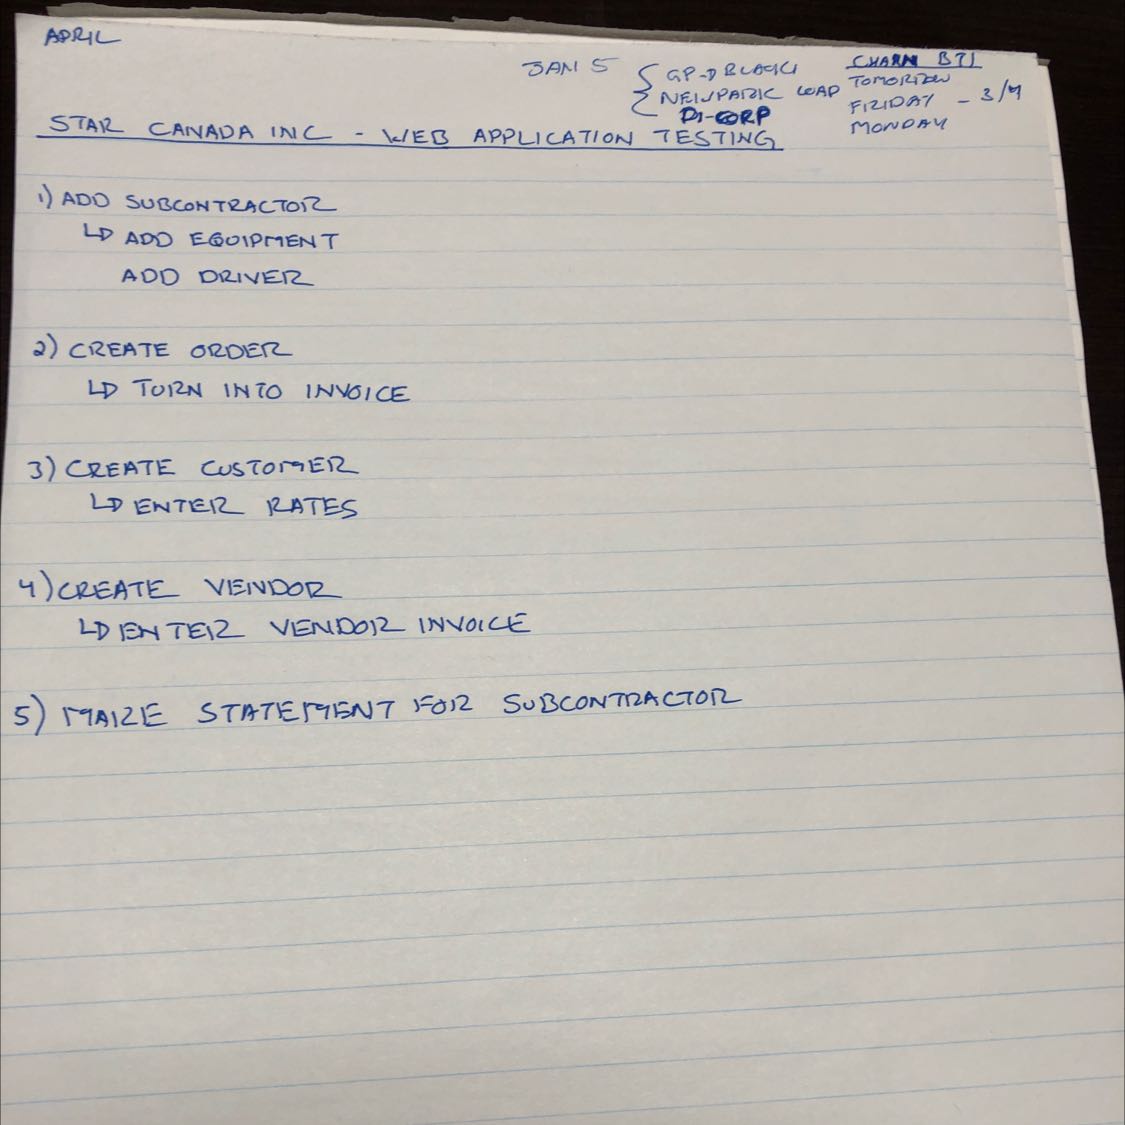 APRIL
JAN 5
GP-D BLACK
NEWPARK LOAD
DI-CORP
CHARN BTI
TOMORROW
FRIDAY - 3/4
MONDAY
STAR CANADA INC - WEB APPLICATION TESTING
1) ADD SUBCONTRACTOR
↳ ADD EQUIPMENT
ADD DRIVER
2) CREATE ORDER
↳ TURN INTO INVOICE
3) CREATE CUSTOMER
↳ ENTER RATES
4) CREATE VENDOR
↳ ENTER VENDOR INVOICE
5) MAKE STATEMENT FOR SUBCONTRACTOR